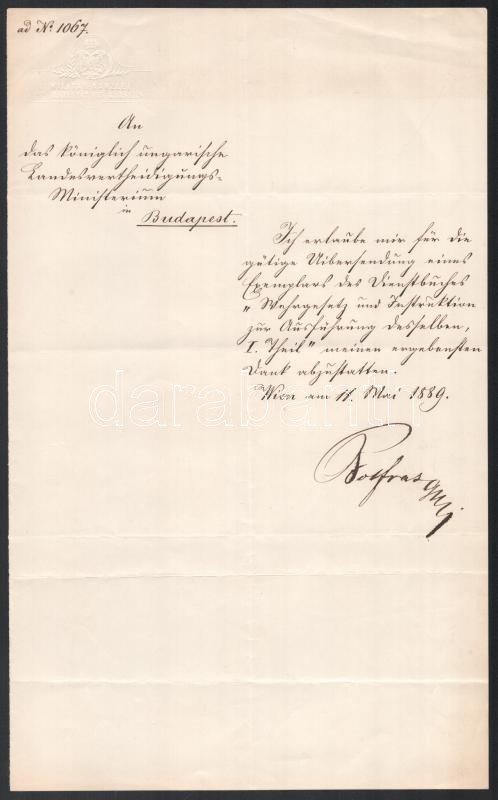 ad No 1067.
An
das königlich ungarische
Landesvertheidigungs-
Ministerium
in
Budapest.
Ich erlaube mir für die
gütige Uibersendung eines
Exemplars des Dienstbuches
„Wehrgesetz und Instruktion
zur Ausführung desselben,
I. Theil" meinen ergebensten
Dank abzustatten.
Wien am 11. Mai 1889.
Bolfras GM
darabanth
www.darabanth.com